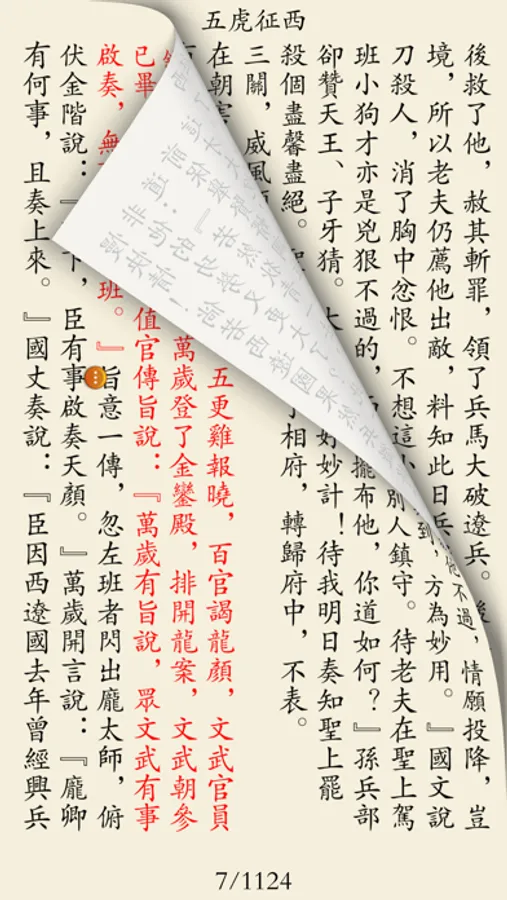 五虎征西
後救了他，赦其斬罪，領了兵馬大破遼兵。後不過，情願投降，豈
境，所以老夫仍薦他出敵，料知此日兵到，方為妙用。』國文說
刀殺人，消了胸中忿恨。不想這小別人鎮守。待老夫在聖上駕
班小狗才亦是兇狠不過的，擺布他，你道如何？』孫兵部
卻贊天王、子牙猜。大好妙計！待我明日奏知聖上罷
殺個盡馨盡絕。了相府，轉歸府中，不表。
三關，威風
在朝害五更雞報曉，百官謁龍顏，文武官員
萬歲登了金鑾殿，排開龍案，文武朝參
已畢值官傳旨說：『萬歲有旨說，眾文武有事
啟奏，無班。』旨意一傳，忽左班者閃出龐太師，俯
伏金階說：下，臣有事啟奏天顏。』萬歲開言說：『龐卿
有何事，且奏上來。』國丈奏說：『臣因西遼國去年曾經興兵
7/1124